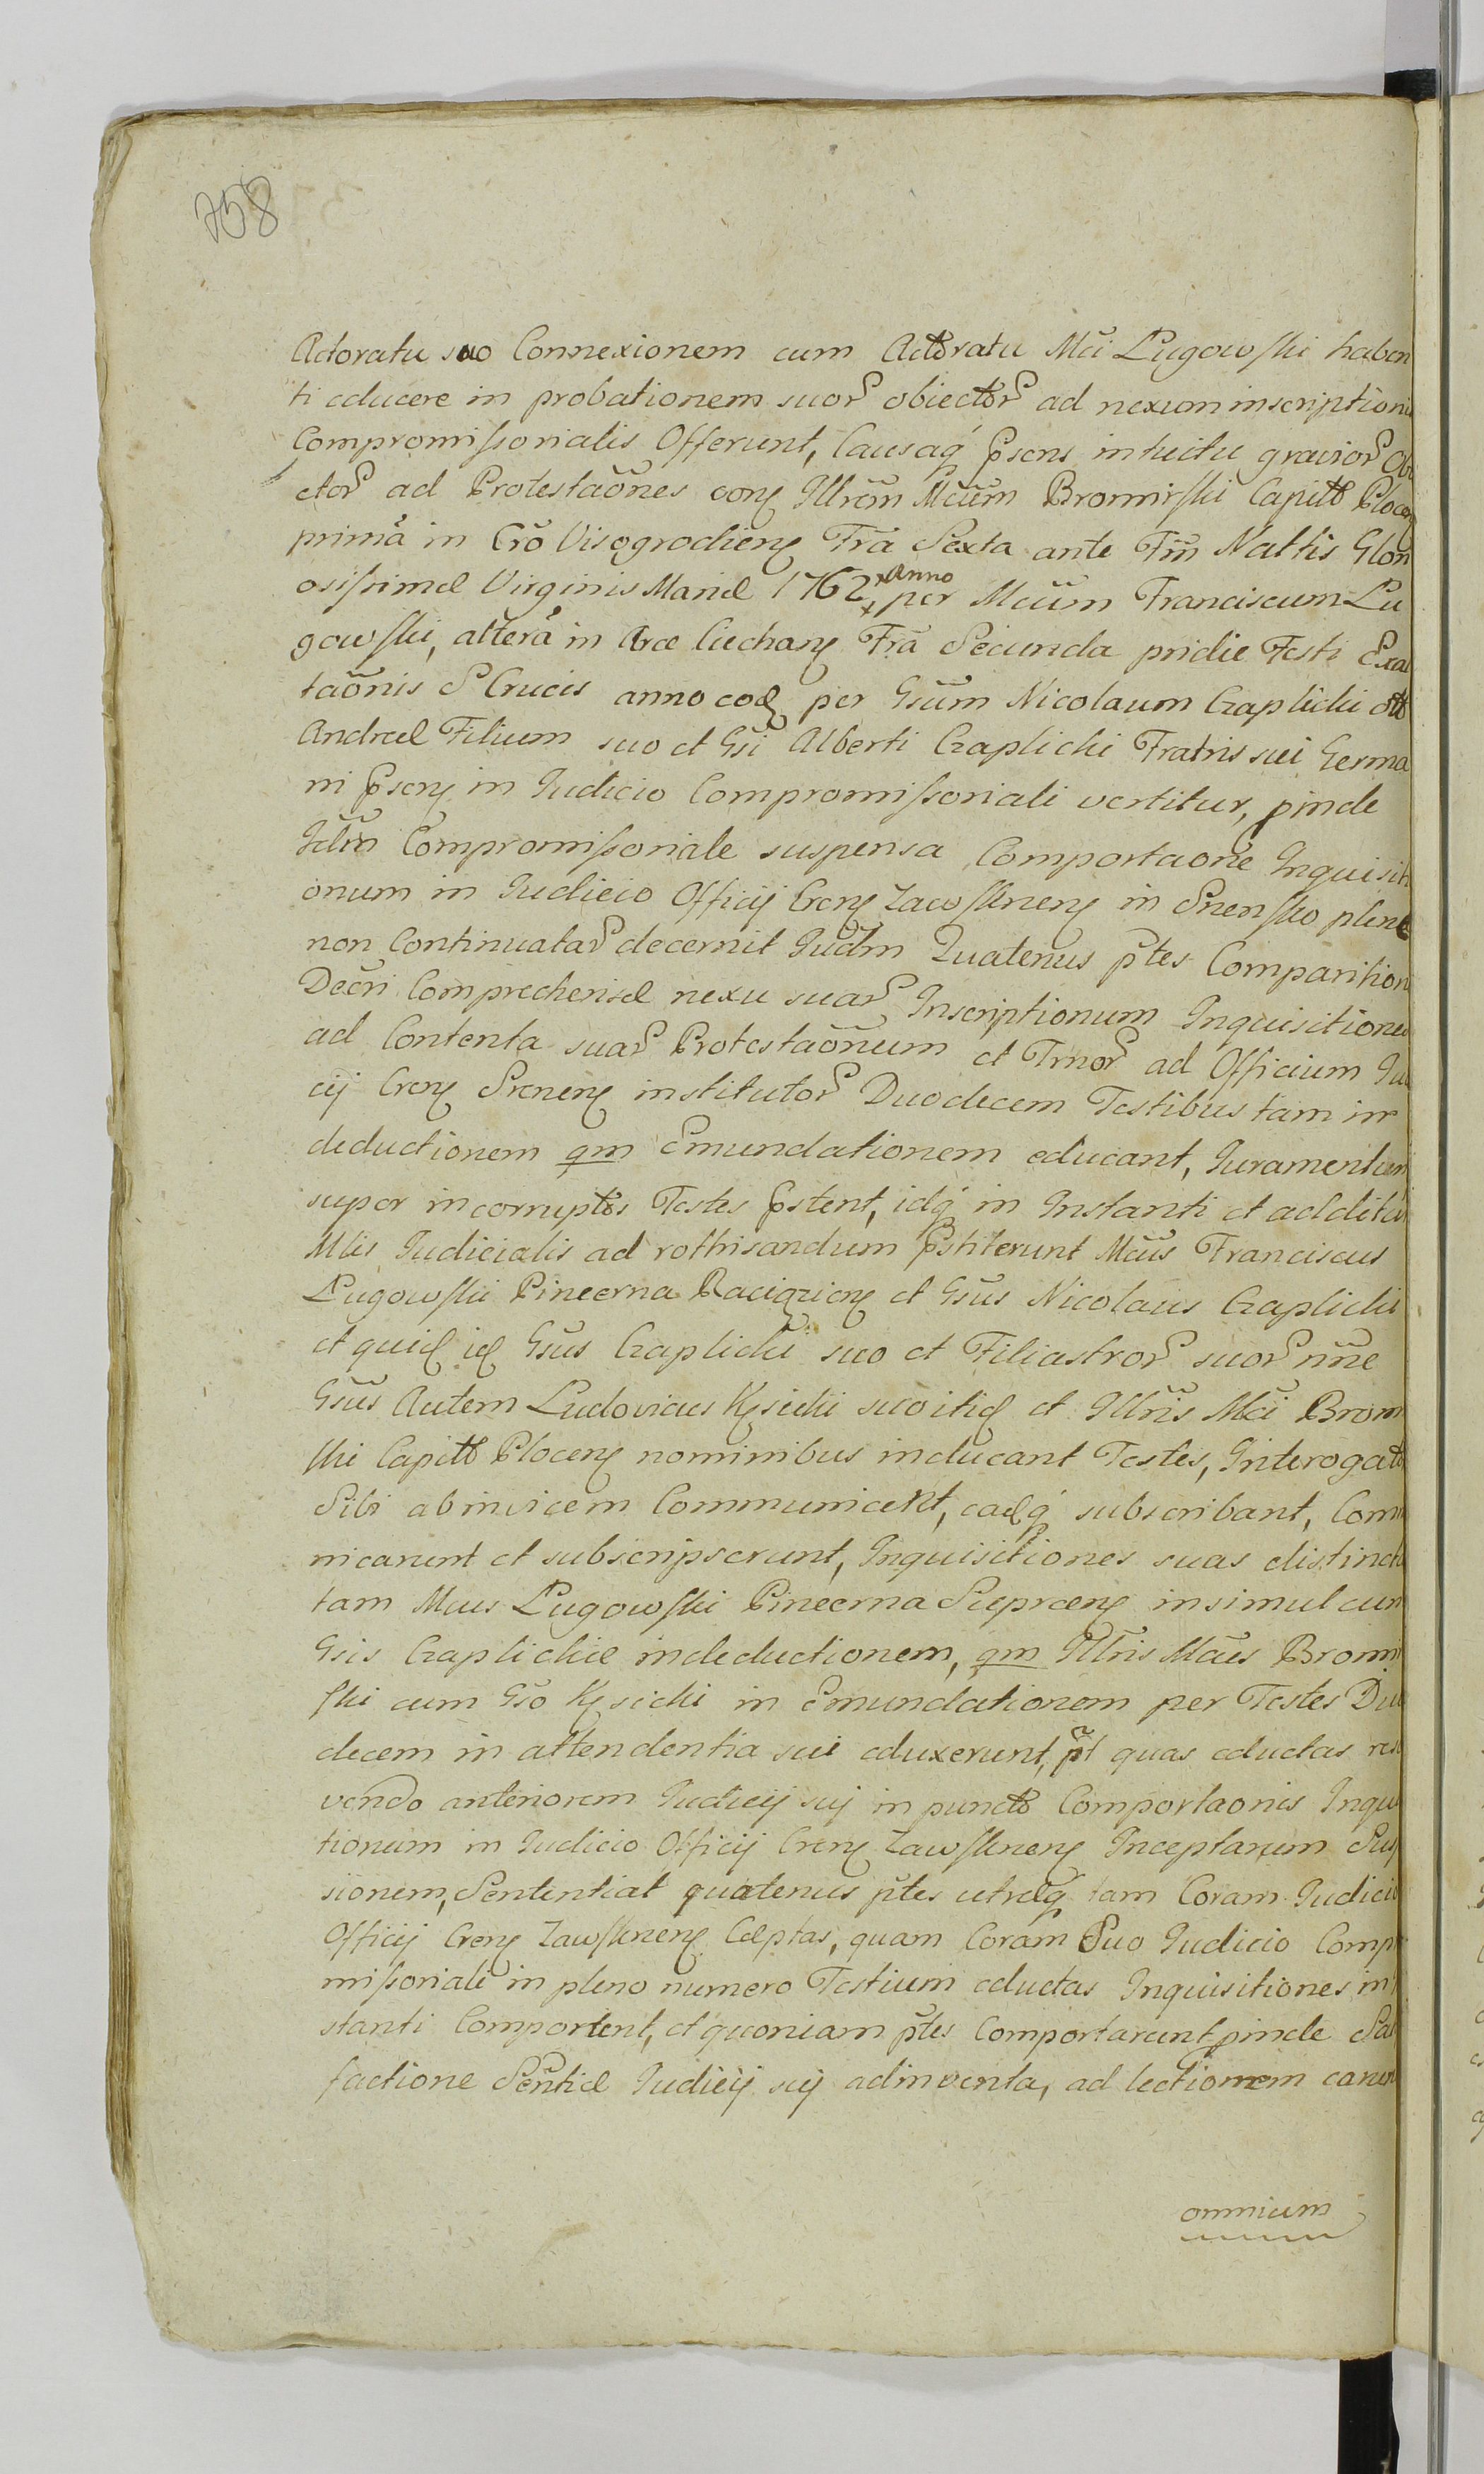 758
Actoratu suo Connexionem cum Actoratu Mci Ługowski haben
ti educere in probationem suor obiector ad nexum inscriptionis
Compromissorialis Offerunt, Causaq psens intuitu gravior Obi
ctor ad Protestaōnes conz Illrem Mcūm Bromirski Capitt Plocen
primā in Crō Visogrodienz Fra Sexta ante Fm Nattis Glori
osissimæ Virginis Mariæ 1762 Anno per Mcūm Franciscum Łu
gowski, alterā in Arce Ciechanz Fra Secunda pridie Festi Exal
taōnis S Crucis anno eod per Gsūm Nicolaum Czaplicki ott
Andreæ Filium suo et Gsi Alberti Czaplicki Fratris sui Germa
ni psenz in Iudicio Compromissoriali vertitur, pinde
Idm Compromissoriale suspensa Comportaone Inquisiti
onum in Iudicio Officij Crenz Zawskrnenz in Srensko plene
non Continuatar decernit Iudm Quatenus ptes Comparitioni
Decri Comprechensæ nexu suar Inscriptionum Inquisitiones
ad Contenta suar Protestaōnum et Trnor ad Officium Iu
cij Crenz Srenenz institutor Duodecem Testibus tam in
deductionem qm Emundationem educant, Iuramentum
super incorruptos Testes pstent, idq in Instanti et additu
Mlis Iudicialis ad rothisandum pstiterunt Mcūs Franciscus
Ługowski Pincerna Raciązienz et Gsūs Nicolaus Czaplicki
et quid id Gsus Czaplicki suo et Filiastror suor nne
Gsūs Autem Ludovicus Kęsicki suo itid et Illris Mci Bromir
ski Capitt Plocenz nominibus inducant Testes, Interogat
Sibi ab invicem Communicent, eadq subscribant, Com
nicarunt et subscripserunt, Inquisitiones suas distincte
tam Mcus Ługowski Pincerna Sieprcenz insimul cum
Gsis Czaplickie in deductionem, qm Illris Mcus Bromir
ski cum Gso Kęsicki in Emundationem per Testes Duo
decem in attendentia sui eduxerunt, pt quas eductas resol
vendo anteriorem Iudicij sij in puncto Comportaonis Inquisi
tionum in Iudicio Officij Crenz Zawskrnenz Inceptarum Sus
sionem, Sententiat quatenus ptes utræq tam Coram Iudicio
Officij Crenz Zawskrnenz Cæptas, quam Coram Suo Iudicio Comp
missoriali in pleno numero Testium eductas Inquisitiones in
stanti Comportent, et quoniam ptes Comportarunt pinde Sat
factione Sentiæ Iudicij sij adinventa, ad lectionem earun
omnium